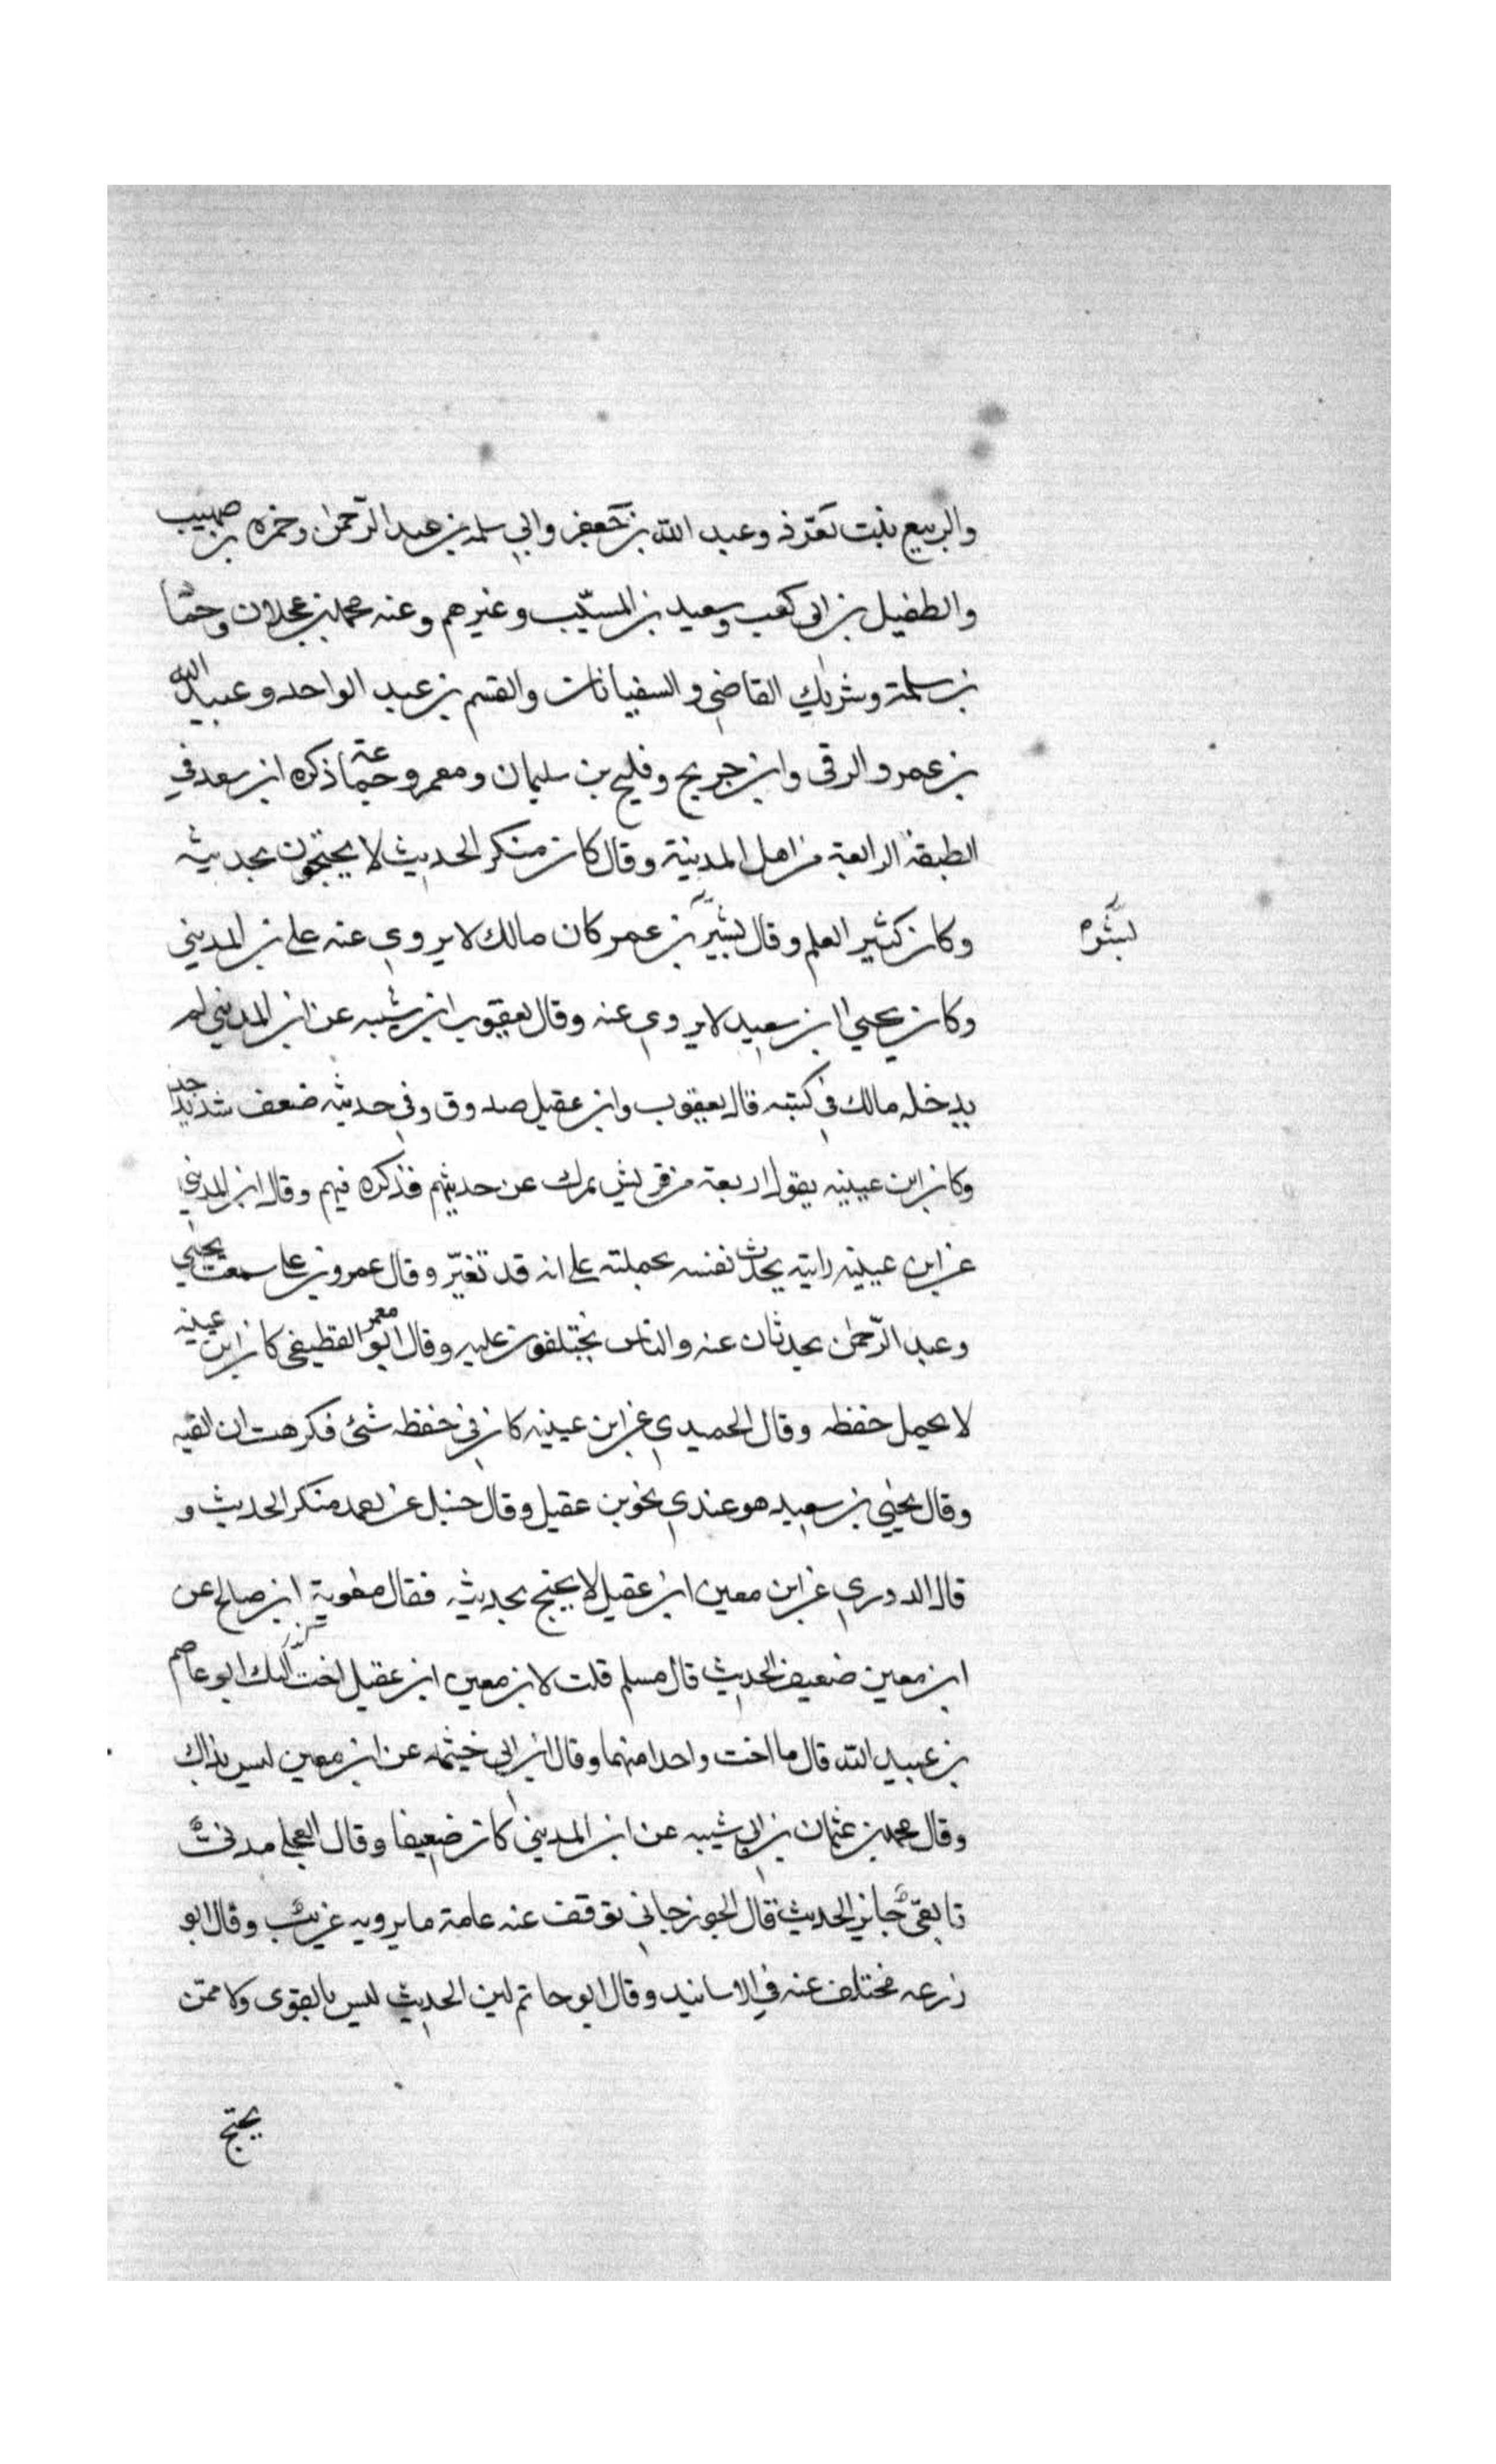 والربيع بنت تعوذ وعبد الله بن جعفر وابي سلمه بن عبد الرحمن وحمزه بن صهيب
والطفيل بن ابي كعب وسعيد بن المسيب وغيرهم وعنه محمد بن عجلان وحما
بن سلمة وشريك القاضي والسفيانان والقسم بن عبد الواحد وعبيد الله
بن عمرو الرقى وابن جريج وفليح بن سليمان ومعمر وجماعة ذكره ابن سعد في
الطبقة الرابعة من اهل المدينة وقال كان منكر الحديث لا يحتجون بحديثه
وكان كثير العلم وقال بشر بن عمر كان مالك لا يروي عنه على بن المديني
وكان يحيي ابن سعيد لا يروي عنه وقال يعقوب ابن شيبه عن ابن المديني لم
يدخله مالك في كتبه قال يعقوب وابن عقيل صدوق وفي حديثه ضعف شديد جدا
وكان ابن عيينه يقول اربعة من قريش يمرك عن حديثهم فذكره فيهم وقال ابن المديني
عن ابن عيينه رايته يحدث نفسه بحملته على انه قد تغيّر وقال عمرو بن على سمعت يحيي
وعبد الرّحمن يحدثان عنه والناس يختلفون عليه وقال ابو معمر القطيفى كان ابن عيينه
لا يحمل حفظه وقال الحميدي عن ابن عيينه كان في حفظه شئ فكرهت ان القيه
وقال يحيي بن سعيد هو عندي نحو بن عقيل وقال حنبل عن احمد منكر الحديث و
قال الدوري عن ابن معين ابن عقيل لا يحتج بحديثه فقال معوية ابن صالح عن
ابن معين ضعيف الحديث قال مسلم قلت لابن معين ابن عقيل احب اليك ابو عاصم
بن عبيد الله قال ما احب واحدا منهما وقال ابن ابي خيثمه عن ابن معين ليس بذاك
وقال محمد بن عثمان بن ابي شيبه عن ابن المديني كان ضعيفا وقال العجلى مدنىٌّ
تابعىّ جايز الحديث قال الجوزجاني توقف عنه عامة ما يرويه غريبٌ وقال ابو
زرعه مختلف عنه في الاسانيد وقال ابو حاتم لين الحديث ليس بالقوى ولا ممّن
يحتج